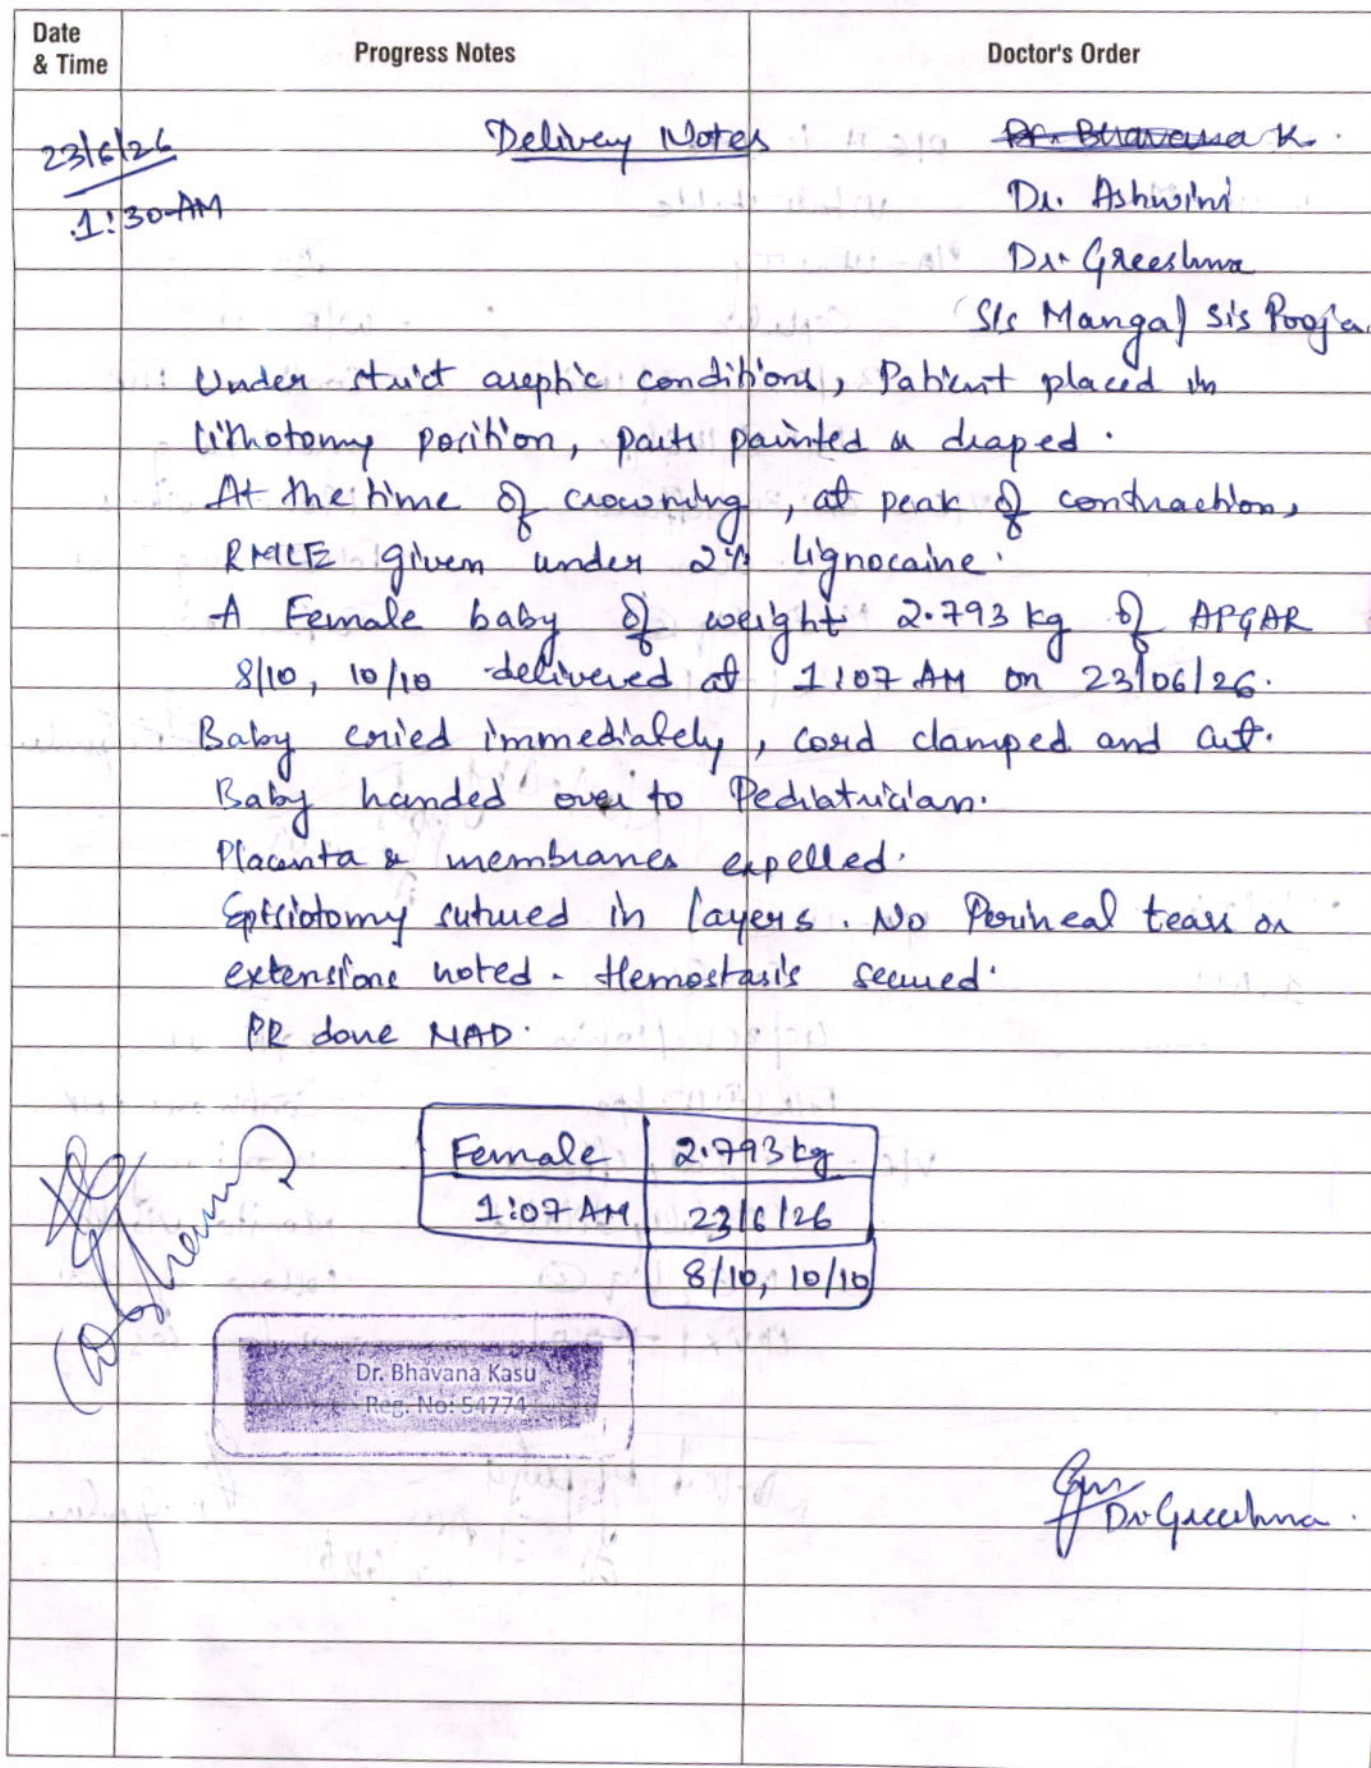 Date
& Time
Progress Notes
Doctor's Order
23/6/26
1:30 AM
Delivery Notes
Dr. Bhavana K.
Dr. Ashwini
Dr. Greeshma
Sis Mangal Sis Pooja
Under strict aseptic conditions, Patient placed in
lithotomy position, parts painted & draped.
At the time of crowning, at peak of contraction,
RMLE given under 2% lignocaine.
A Female baby of weight 2.793 kg of APGAR
8/10, 10/10 delivered at 1:07 AM on 23/06/26.
Baby cried immediately, cord clamped and cut.
Baby handed over to Pediatrician.
Placenta & membranes expelled.
Episiotomy sutured in layers. No Perineal tears or
extensions noted - Hemostasis secured.
PR done NAD.
Female 2.793 kg
1:07 AM 23/6/26
8/10, 10/10
Dr. Bhavana Kasu
Reg. No: 54774
Dr Greeshma.